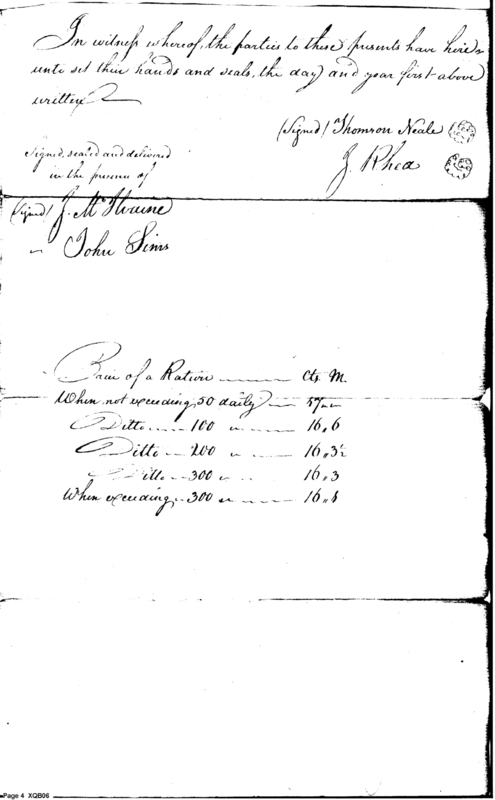 In witness whereof, the parties to these presents have here
unto set their hands and seals, the day and year first above
written
(Signed) Thomson Neale
Signed, sealed and delivered
in the presence of
J. Rhea
(Signed) J. McIlvaine
" John Sims
Price of a Ration Cts. M.
When not exceeding 50 daily 17
Ditto 100 " 16,6
Ditto 200 " 16,3½
Ditto 300 " 16,3
When exceeding 300
Page 4 XQB06